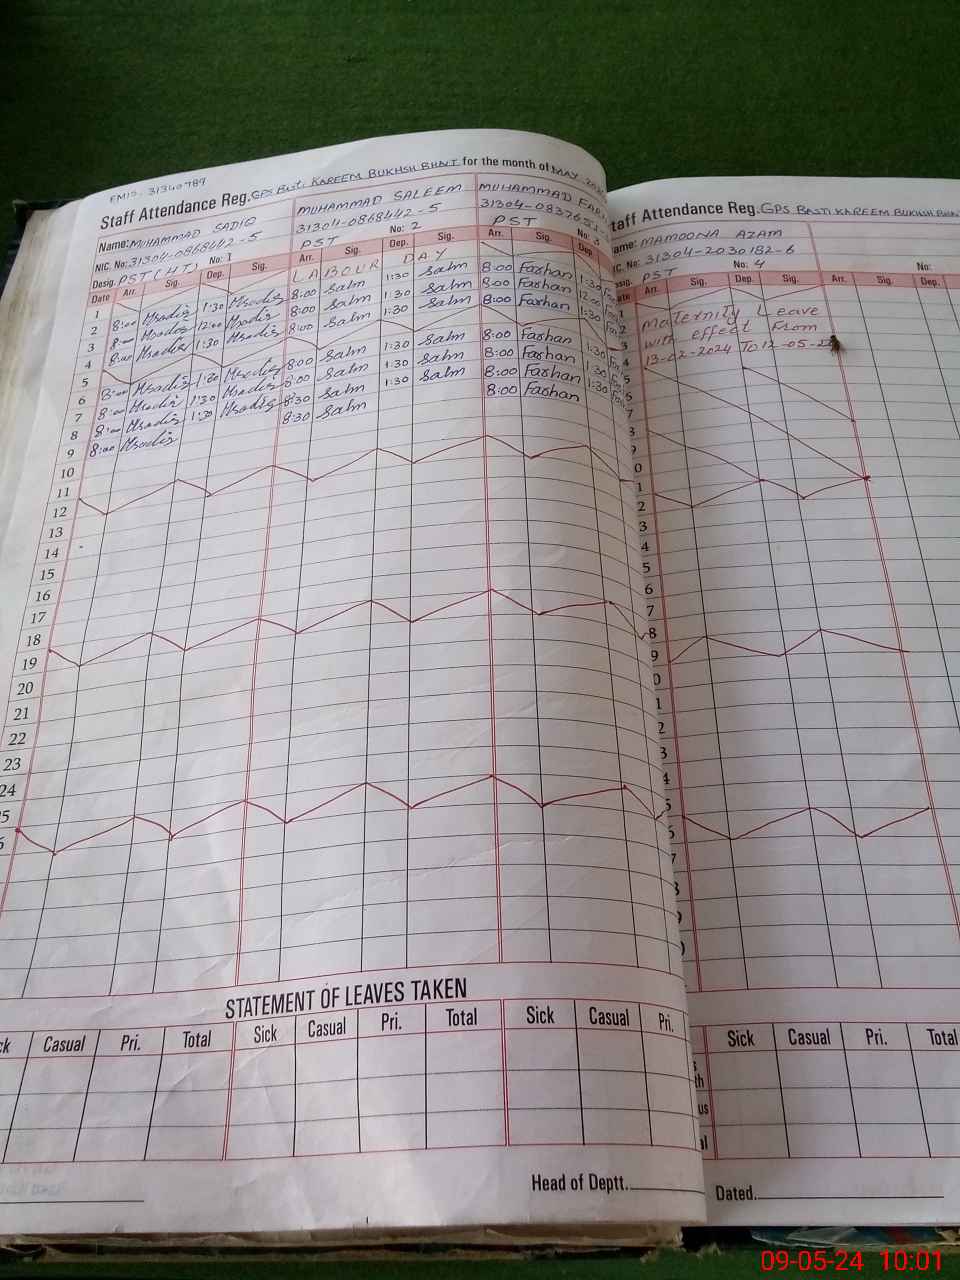 EMIS. 31340789
Staff Attendance Reg. GPS BASTI KAREEM BUKHSH BHATTI for the month of MAY
Name: MUHAMMAD SADIQ MUHAMMAD SALEEM MUHAMMAD
NIC. No: 31304-0868442-5 31304-0868442-5 31304-083765
Desig. PST(HT) No: 1 PST No: 2 PST No: 3
Date Arr. Sig. Dep. Sig. Arr. Sig. Dep. Sig. Arr. Sig. Dep.
1 LABOUR DAY
2 8:00 Msadiq 1:30 Msadiq 8:00 Salm 1:30 Salm 8:00 Farhan 1:30
3 8:00 Msadiq 12:00 Msadiq 8:00 Salm 1:30 Salm 8:00 Farhan 12:00
4 8:00 Msadiq 1:30 Msadiq 8:00 Salm 1:30 Salm 8:00 Farhan 1:30
5
6 8:00 Msadiq 1:30 Msadiq 8:00 Salm 1:30 Salm 8:00 Farhan 1:30
7 8:00 Msadiq 1:30 Msadiq 8:00 Salm 1:30 Salm 8:00 Farhan 1:30
8 8:00 Msadiq 1:30 Msadiq 8:30 Salm 1:30 Salm 8:00 Farhan 1:30
9 8:00 Msadiq 8:30 Salm 8:00 Farhan
10
11
12
13
14
15
16
17
18
19
20
21
22
23
24
STATEMENT OF LEAVES TAKEN
Casual Pri. Total Sick Casual Pri. Total Sick Casual Pri.
Head of Deptt.
Staff Attendance Reg. GPS BASTI KAREEM BUKHSH
Name: MAMOONA AZAM
NIC. No: 31304-2030182-6
Desig. PST No: 4 No:
Date Arr. Sig. Dep. Sig. Arr. Sig. Dep.
Maternity Leave
with effect From
13-02-2024 To 12-05-24
Sick Casual Pri. Total
Dated.
09-05-24 10:01